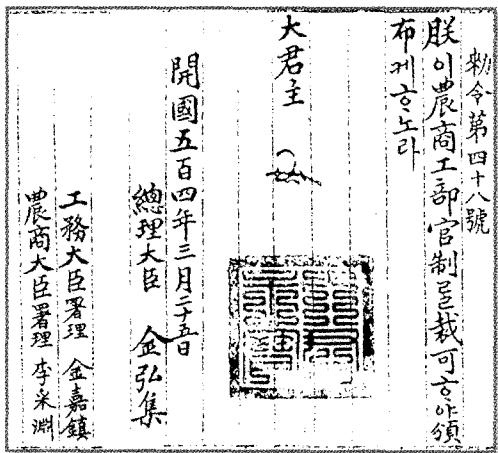 勅令第四十八號
朕이農商工部官制를裁可ᄒᆞ야頒
布케ᄒᆞ노라
大君主
開國五百四年三月二十五日
總理大臣 金弘集
工務大臣署理 金嘉鎭
農商大臣署理 李采淵